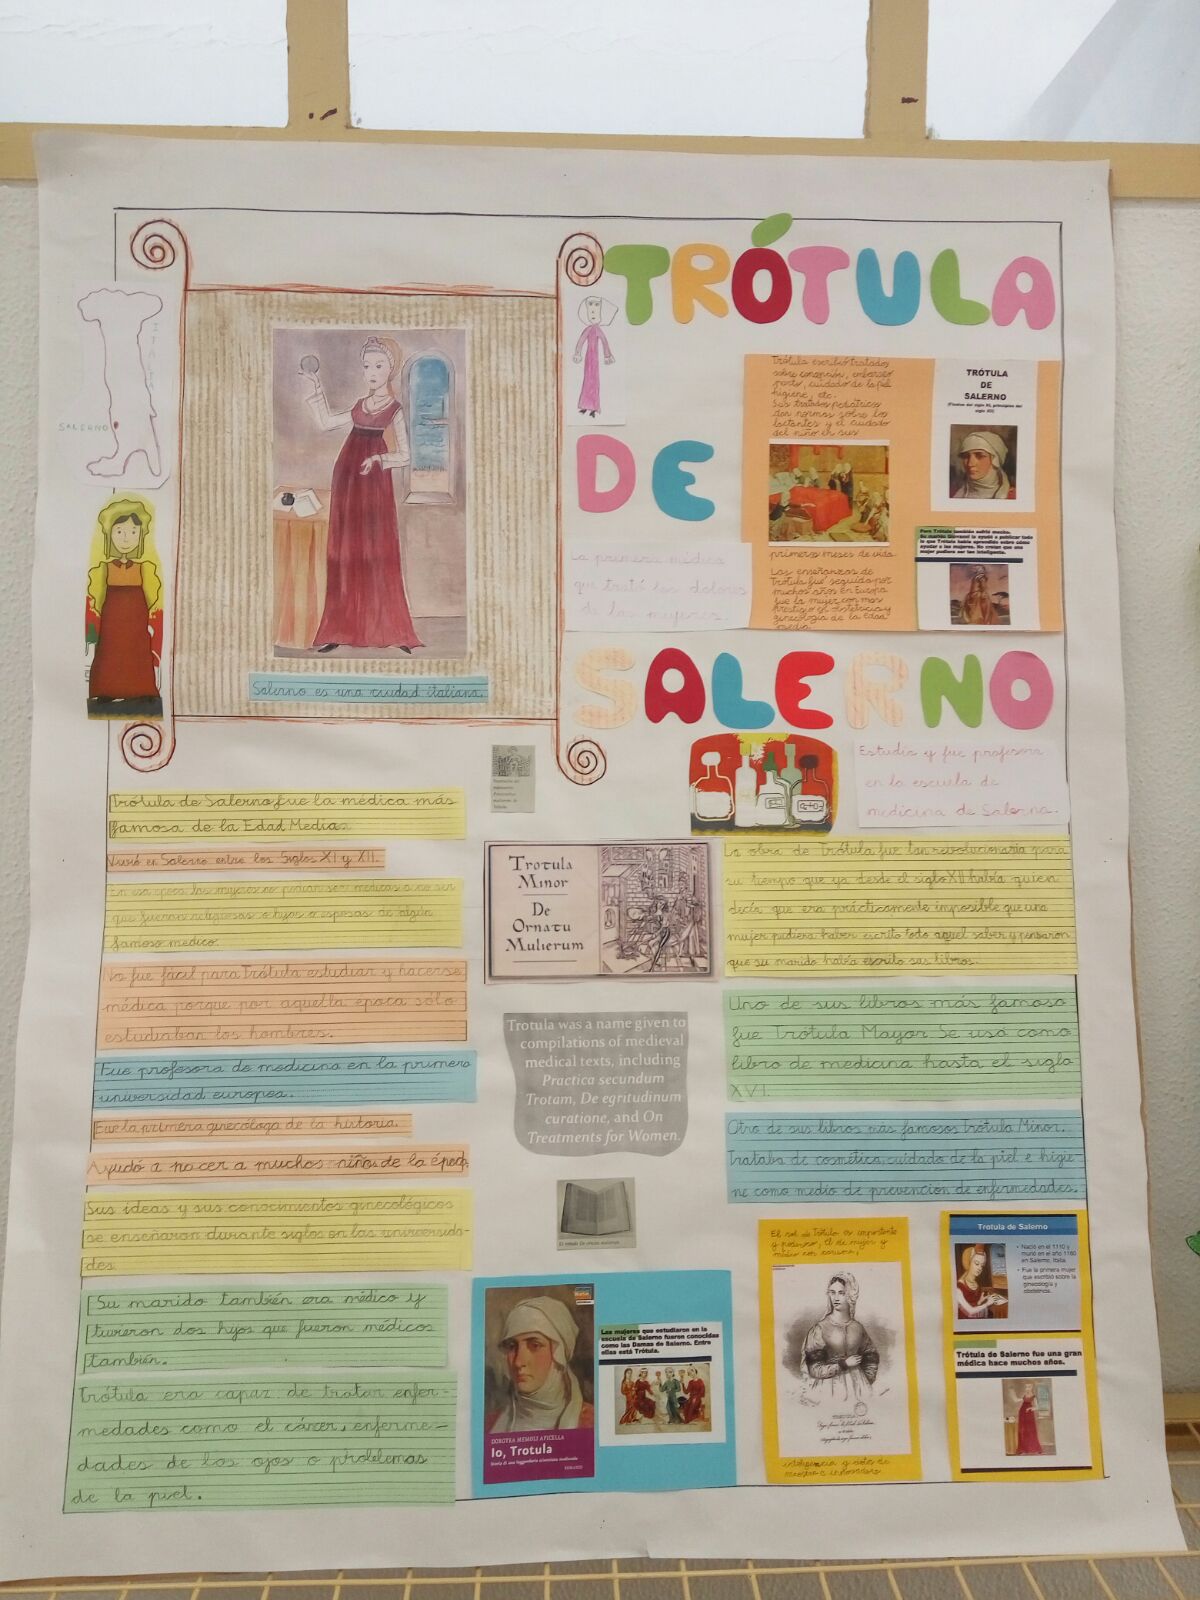 TRÓTULA
DE
SALERNO
ITALIA
SALERNO
Salerno es una ciudad italiana.
La primera médica
que trató los dolores
de las mujeres.
Trótula escribió tratados
sobre concepción, embarazo
parto, cuidado de la piel
higiene, etc.
Sus tratados pediátricos
dan normas sobre los
lactantes y el cuidado
del niño en sus
primeros meses de vida.
Las enseñanzas de
Trótula fue seguida por
muchos años en Europa
fue la mujer con mas
prestigio en obstetricia y
ginecología de la Edad
media.
TRÓTULA
DE
SALERNO
(Finales del siglo XI, principios del
siglo XII)
Pero Trótula también sufrió mucho.
Su marido Giovanni la ayudó a publicar todo
lo que Trótula había aprendido sobre cómo
ayudar a las mujeres. No creían que una
mujer pudiera ser tan inteligente.
Estudia y fue profesora
en la escuela de
medicina de Salerno.
Trótula de Salerno fue la médica más
famosa de la Edad Media.
Vivió en Salerno entre los Siglos XI y XII.
En esa época las mujeres no podían ser médicas a no ser
que fueran religiosas o hijas o esposas de algún
famoso médico.
No fue fácil para Trótula estudiar y hacerse
médica porque por aquella época sólo
estudiaban los hombres.
Fue profesora de medicina en la primera
universidad europea.
Fue la primera ginecóloga de la historia.
Ayudó a nacer a muchos niños de la época.
Sus ideas y sus conocimientos ginecológicos
se enseñaron durante siglos en las universida-
des.
Su marido también era médico y
tuvieron dos hijos que fueron médicos
también.
Trótula era capaz de tratar enfer-
medades como el cáncer, enferme-
dades de los ojos o problemas
de la piel.
TROTULA
MINOR
DE
ORNATU
MULIERUM
Trotula was a name given to
compilations of medieval
medical texts, including
Practica secundum
Trotam, De egritudinum
curatione, and On
Treatments for Women.
La obra de Trótula fue tan revolucionaria para
su tiempo que ya desde el siglo XII había quien
decía que era prácticamente imposible que una
mujer pudiera haber escrito todo aquel saber y pensaron
que su marido había escrito sus libros.
Uno de sus libros más famoso
fue Trótula Mayor. Se usó como
libro de medicina hasta el siglo
XVI.
Otro de sus libros más famosos trótula Minor.
Trataba de cosmética, cuidado de la piel e higie-
ne como medio de prevención de enfermedades.
DOROTEA MEMOLI APICELLA
Io, Trotula
Las mujeres que estudiaron en la
escuela de Salerno fueron conocidas
como las Damas de Salerno. Entre
ellas está Trótula.
El rol de Trótula es importante
Trotula de Salerno
• Nació en el 1110 y
murió en el año 1160
en Salerno, Italia.
• Fue la primera mujer
que escribió sobre la
ginecología y
obstetricia.
Trótula de Salerno fue una gran
médica hace muchos años.